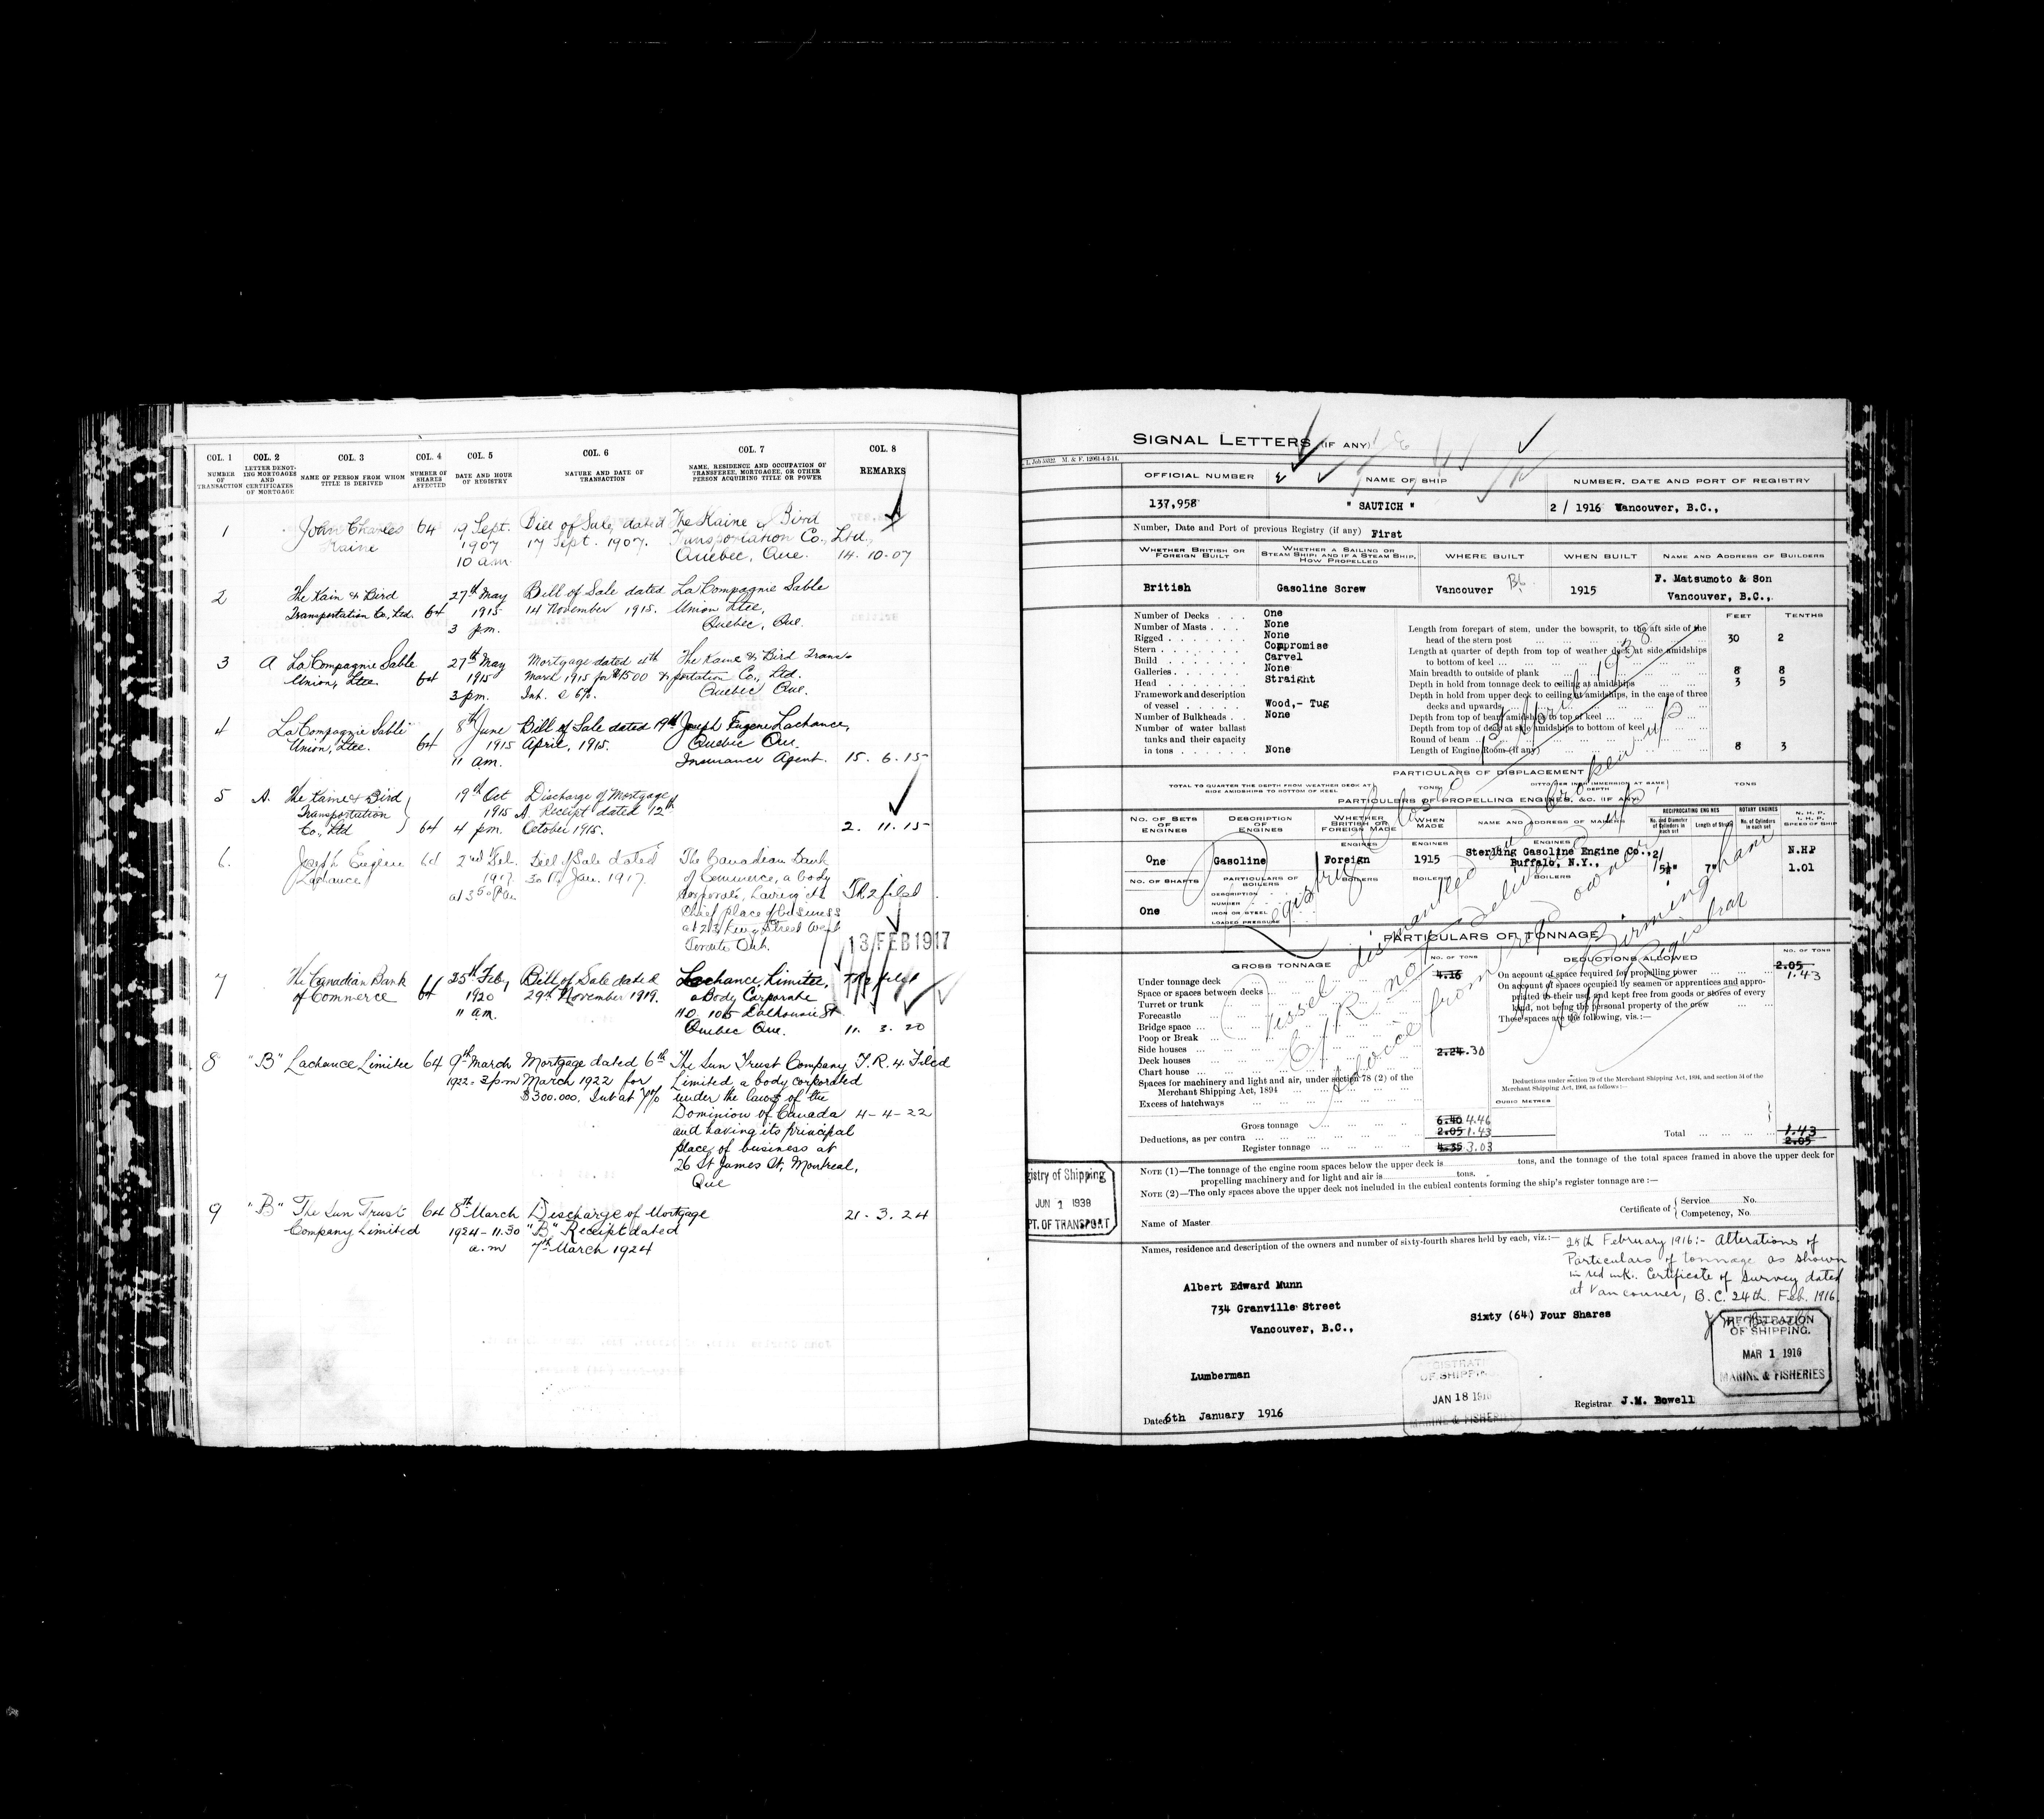 COL. 1 COL. 2 COL. 3 COL. 4 COL. 5 COL. 6 COL. 7 COL. 8
NUMBER OF TRANSACTION
LETTER DENOTING MORTGAGES AND CERTIFICATES OF MORTGAGE
NAME OF PERSON FROM WHOM TITLE IS DERIVED
NUMBER OF SHARES AFFECTED
DATE AND HOUR OF REGISTRY
NATURE AND DATE OF TRANSACTION
NAME, RESIDENCE AND OCCUPATION OF TRANSFEREE, MORTGAGEE, OR OTHER PERSON ACQUIRING TITLE OR POWER
REMARKS
1 John Charles 64 19 Sept. Bill of Sale, dated The Kaine & Bird
Kaine 1907 17 Sept. 1907. Transportation Co., Ltd.,
10 a.m. Quebec, Que. 14. 10. 07
2 The Kain & Bird 27th May Bill of Sale dated La Compagnie Sable
Transportation Co, Ltd. 64 1915 14 November 1915. Union Ltee,
3 p.m. Quebec, Que.
3 A La Compagnie Sable 27th May Mortgage dated 11th The Kaine & Bird Trans-
Union, Ltee. 64 1915 March 1915 for $1500 & portation Co., Ltd.
3 p.m. Int. @ 6%. Quebec Que.
4 La Compagnie Sable 8th June Bill of Sale dated 19th Joseph Eugene Lachance,
Union, Ltee. 64 1915 April, 1915. Quebec Que.
11 a.m. Insurance Agent. 15. 6. 15
5 A. The Kaine & Bird 19th Oct Discharge of Mortgage
Transportation 1915 A. Receipt dated 12th
Co., Ltd 64 4 p.m. October 1915. 2. 11. 15
6. Joseph Eugene 64 2nd Feb. Bill of Sale dated The Canadian Bank
Lachance 1917. 30th Jan. 1917. of Commerce, a body
at 3.50 p.m. corporate, having its TR2 filed
Chief place of business
at 25 King Street West
Toronto Ont. 13 FEB 1917
7 The Canadian Bank 64 25th Feb, Bill of Sale dated Lachance, Limitee, TR2 filed
of Commerce 64 1920 29th November 1919. a Body Corporate
11 a.m. No. 105 Dalhousie St
Quebec Que. 11. 3. 20
8 "B" Lachance Limitee 64 9th March Mortgage dated 6th The Sun Trust Company T.R. 4. Filed
1922. 3 p.m March 1922 for Limited a body corporated
$300.000. Int at 7% under the laws of the
Dominion of Canada 4-4-22
and having its principal
place of business at
26 St James St, Montreal,
Que
9 "B" The Sun Trust 64 8th March Discharge of Mortgage 21. 3. 24
Company Limited 1924-11.30 "B" Receipt dated
a.m 7th March 1924
SIGNAL LETTERS (IF ANY)
M. & F. 12061-4-2-14.
OFFICIAL NUMBER NAME OF SHIP NUMBER, DATE AND PORT OF REGISTRY
137,958 " SAUTICH " 2 / 1916 Vancouver, B.C.,
Number, Date and Port of previous Registry (if any) First
WHETHER BRITISH OR FOREIGN BUILT
WHETHER A SAILING OR STEAM SHIP; AND IF A STEAM SHIP, HOW PROPELLED
WHERE BUILT WHEN BUILT NAME AND ADDRESS OF BUILDERS
British Gasoline Screw Vancouver B.C. 1915 F. Matsumoto & Son
Vancouver, B.C.,
FEET TENTHS
Number of Decks One
Number of Masts None
Rigged None
Stern Compromise
Build Carvel
Galleries None
Head Straight
Framework and description
of vessel Wood,- Tug
Number of Bulkheads None
Number of water ballast
tanks and their capacity
in tons None
Length from forepart of stem, under the bowsprit, to the aft side of the
head of the stern post 30 2
Length at quarter of depth from top of weather deck at side amidships
to bottom of keel
Main breadth to outside of plank 8 8
Depth in hold from tonnage deck to ceiling at amidships 3 5
Depth in hold from upper deck to ceiling at amidships, in the case of three
decks and upwards
Depth from top of beam amidships to top of keel
Depth from top of deck at side amidships to bottom of keel
Round of beam
Length of Engine Room (if any) 8 3
PARTICULARS OF DISPLACEMENT
TOTAL TO QUARTER THE DEPTH FROM WEATHER DECK AT SIDE AMIDSHIPS TO BOTTOM OF KEEL TONS DITTO PER INCH IMMERSION AT SAME DEPTH TONS
PARTICULARS OF PROPELLING ENGINES, &C. (IF ANY)
NO. OF SETS OF ENGINES DESCRIPTION OF ENGINES WHETHER BRITISH OR FOREIGN MADE WHEN MADE NAME AND ADDRESS OF MAKERS
RECIPROCATING ENGINES ROTARY ENGINES
No. and Diameter of Cylinders in each set Length of Stroke No. of Cylinders in each set
N. H. P. I. H. P. SPEED OF SHIP
ENGINES ENGINES ENGINES
One Gasoline Foreign 1915 Sterling Gasoline Engine Co., 2/ N.HP
Buffalo, N.Y., 5½" 7" 1.01
NO. OF SHAFTS PARTICULARS OF BOILERS BOILERS BOILERS BOILERS
DESCRIPTION
NUMBER
One IRON OR STEEL
LOADED PRESSURE
PARTICULARS OF TONNAGE
GROSS TONNAGE NO. OF TONS DEDUCTIONS ALLOWED NO. OF TONS
Under tonnage deck 4.16
Space or spaces between decks
Turret or trunk
Forecastle
Bridge space
Poop or Break
Side houses
Deck houses 2.24 .30
Chart house
Spaces for machinery and light and air, under section 78 (2) of the
Merchant Shipping Act, 1894
Excess of hatchways
Gross tonnage 6.40 4.46
Deductions, as per contra 2.05 1.43
Register tonnage 4.35 3.03
On account of space required for propelling power 2.05 1.43
On account of spaces occupied by seamen or apprentices and appro-
priated to their use, and kept free from goods or stores of every
kind, not being the personal property of the crew
These spaces are the following, vis.:—
Deductions under section 79 of the Merchant Shipping Act, 1894, and section 54 of the
Merchant Shipping Act, 1906, as follows:—
CUBIC METRES
Total 1.43 2.05
Registry closed 13 April 1938
Vessel dismantled and broken up
C/R not delivered
Advice from reg'd owner
Birmingham
Registrar
NOTE (1)—The tonnage of the engine room spaces below the upper deck is tons, and the tonnage of the total spaces framed in above the upper deck for
propelling machinery and for light and air is tons.
NOTE (2)—The only spaces above the upper deck not included in the cubical contents forming the ship's register tonnage are :—
Name of Master
Certificate of Service No.
Competency, No.
gistry of Shipping
JUN 1 1938
PT. OF TRANSPORT
Names, residence and description of the owners and number of sixty-fourth shares held by each, viz.:—
25th February 1916:- Alterations of
Particulars of tonnage as shown
in red ink. Certificate of Survey dated
at Vancouver, B.C. 24th. Feb. 1916.
Albert Edward Munn
734 Granville Street Sixty (64) Four Shares
Vancouver, B.C.,
Lumberman
REGISTRATION
OF SHIPPING.
MAR 1 1916
MARINE & FISHERIES
REGISTRATI
OF SHIPPIN
JAN 18 1916
MARINE & FISHERIE
Dated 6th January 1916
Registrar J.M. Bowell